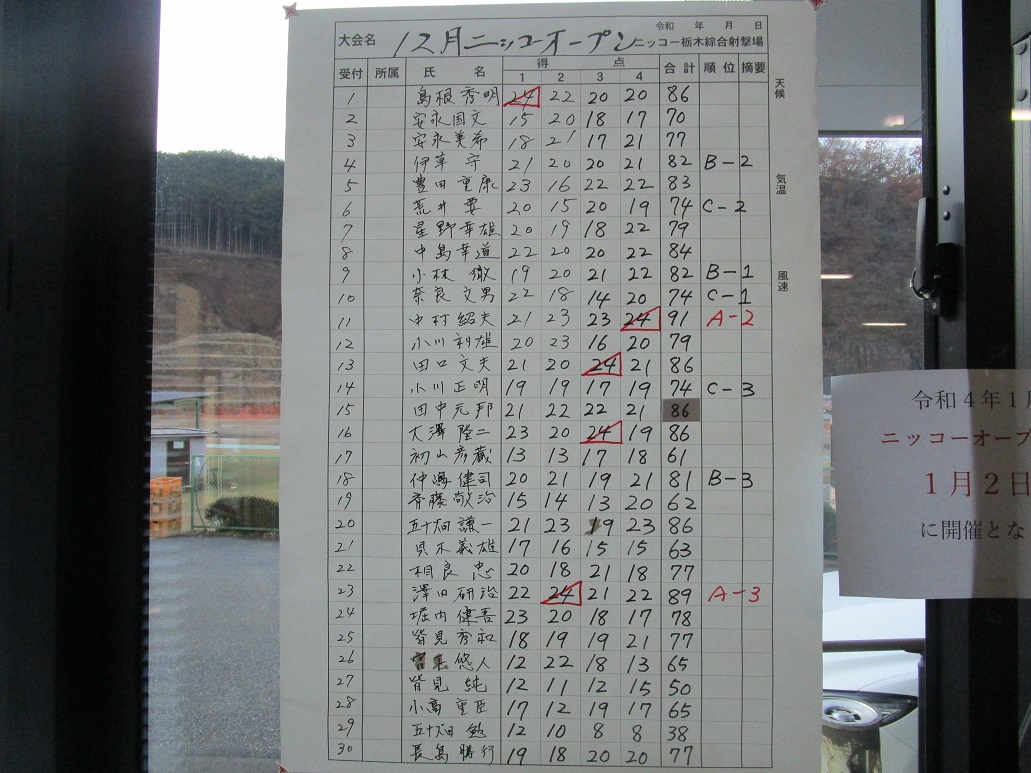 令和 年 月 日
大会名 12月ニッコーオープン ニッコー栃木綜合射撃場
受付 所属 氏 名 得 点 合計 順位 摘要
1 2 3 4
1 島根秀明 24 22 20 20 86
2 安永国文 15 20 18 17 70
3 安永美希 18 21 17 21 77
4 伊草 守 21 20 20 21 82 B-2
5 豊田重康 23 16 22 22 83
6 荒井 要 20 15 20 19 74 C-2
7 星野幸雄 20 19 18 22 79
8 中島幸道 22 20 20 22 84
9 小林 徹 19 20 21 22 82 B-1
10 奈良文男 22 18 14 20 74 C-1
11 中村紹夫 21 23 23 24 91 A-2
12 小川利雄 20 23 16 20 79
13 田口文夫 21 20 24 21 86
14 小川正明 19 19 17 19 74 C-3
15 田中元邦 21 22 22 21 86
16 大澤隆二 23 20 24 19 86
17 初山彦蔵 13 13 17 18 61
18 仲嶋健司 20 21 19 21 81 B-3
19 斉藤敬治 15 14 13 20 62
20 五十畑謙一 21 23 19 23 86
21 貝木義雄 17 16 15 15 63
22 相良 忠 20 18 21 18 77
23 澤田研治 22 24 21 22 89 A-3
24 堀内健吾 23 20 18 17 78
25 皆見秀和 18 19 19 21 77
26 悠人 12 22 18 13 65
27 皆見 純 12 11 12 15 50
28 小高重臣 17 12 19 17 65
29 五十畑 勉 12 10 8 8 38
30 長島勝行 19 18 20 20 77
天候
気温
風速
令和4年1月
ニッコーオープ
1月2日
に開催とな